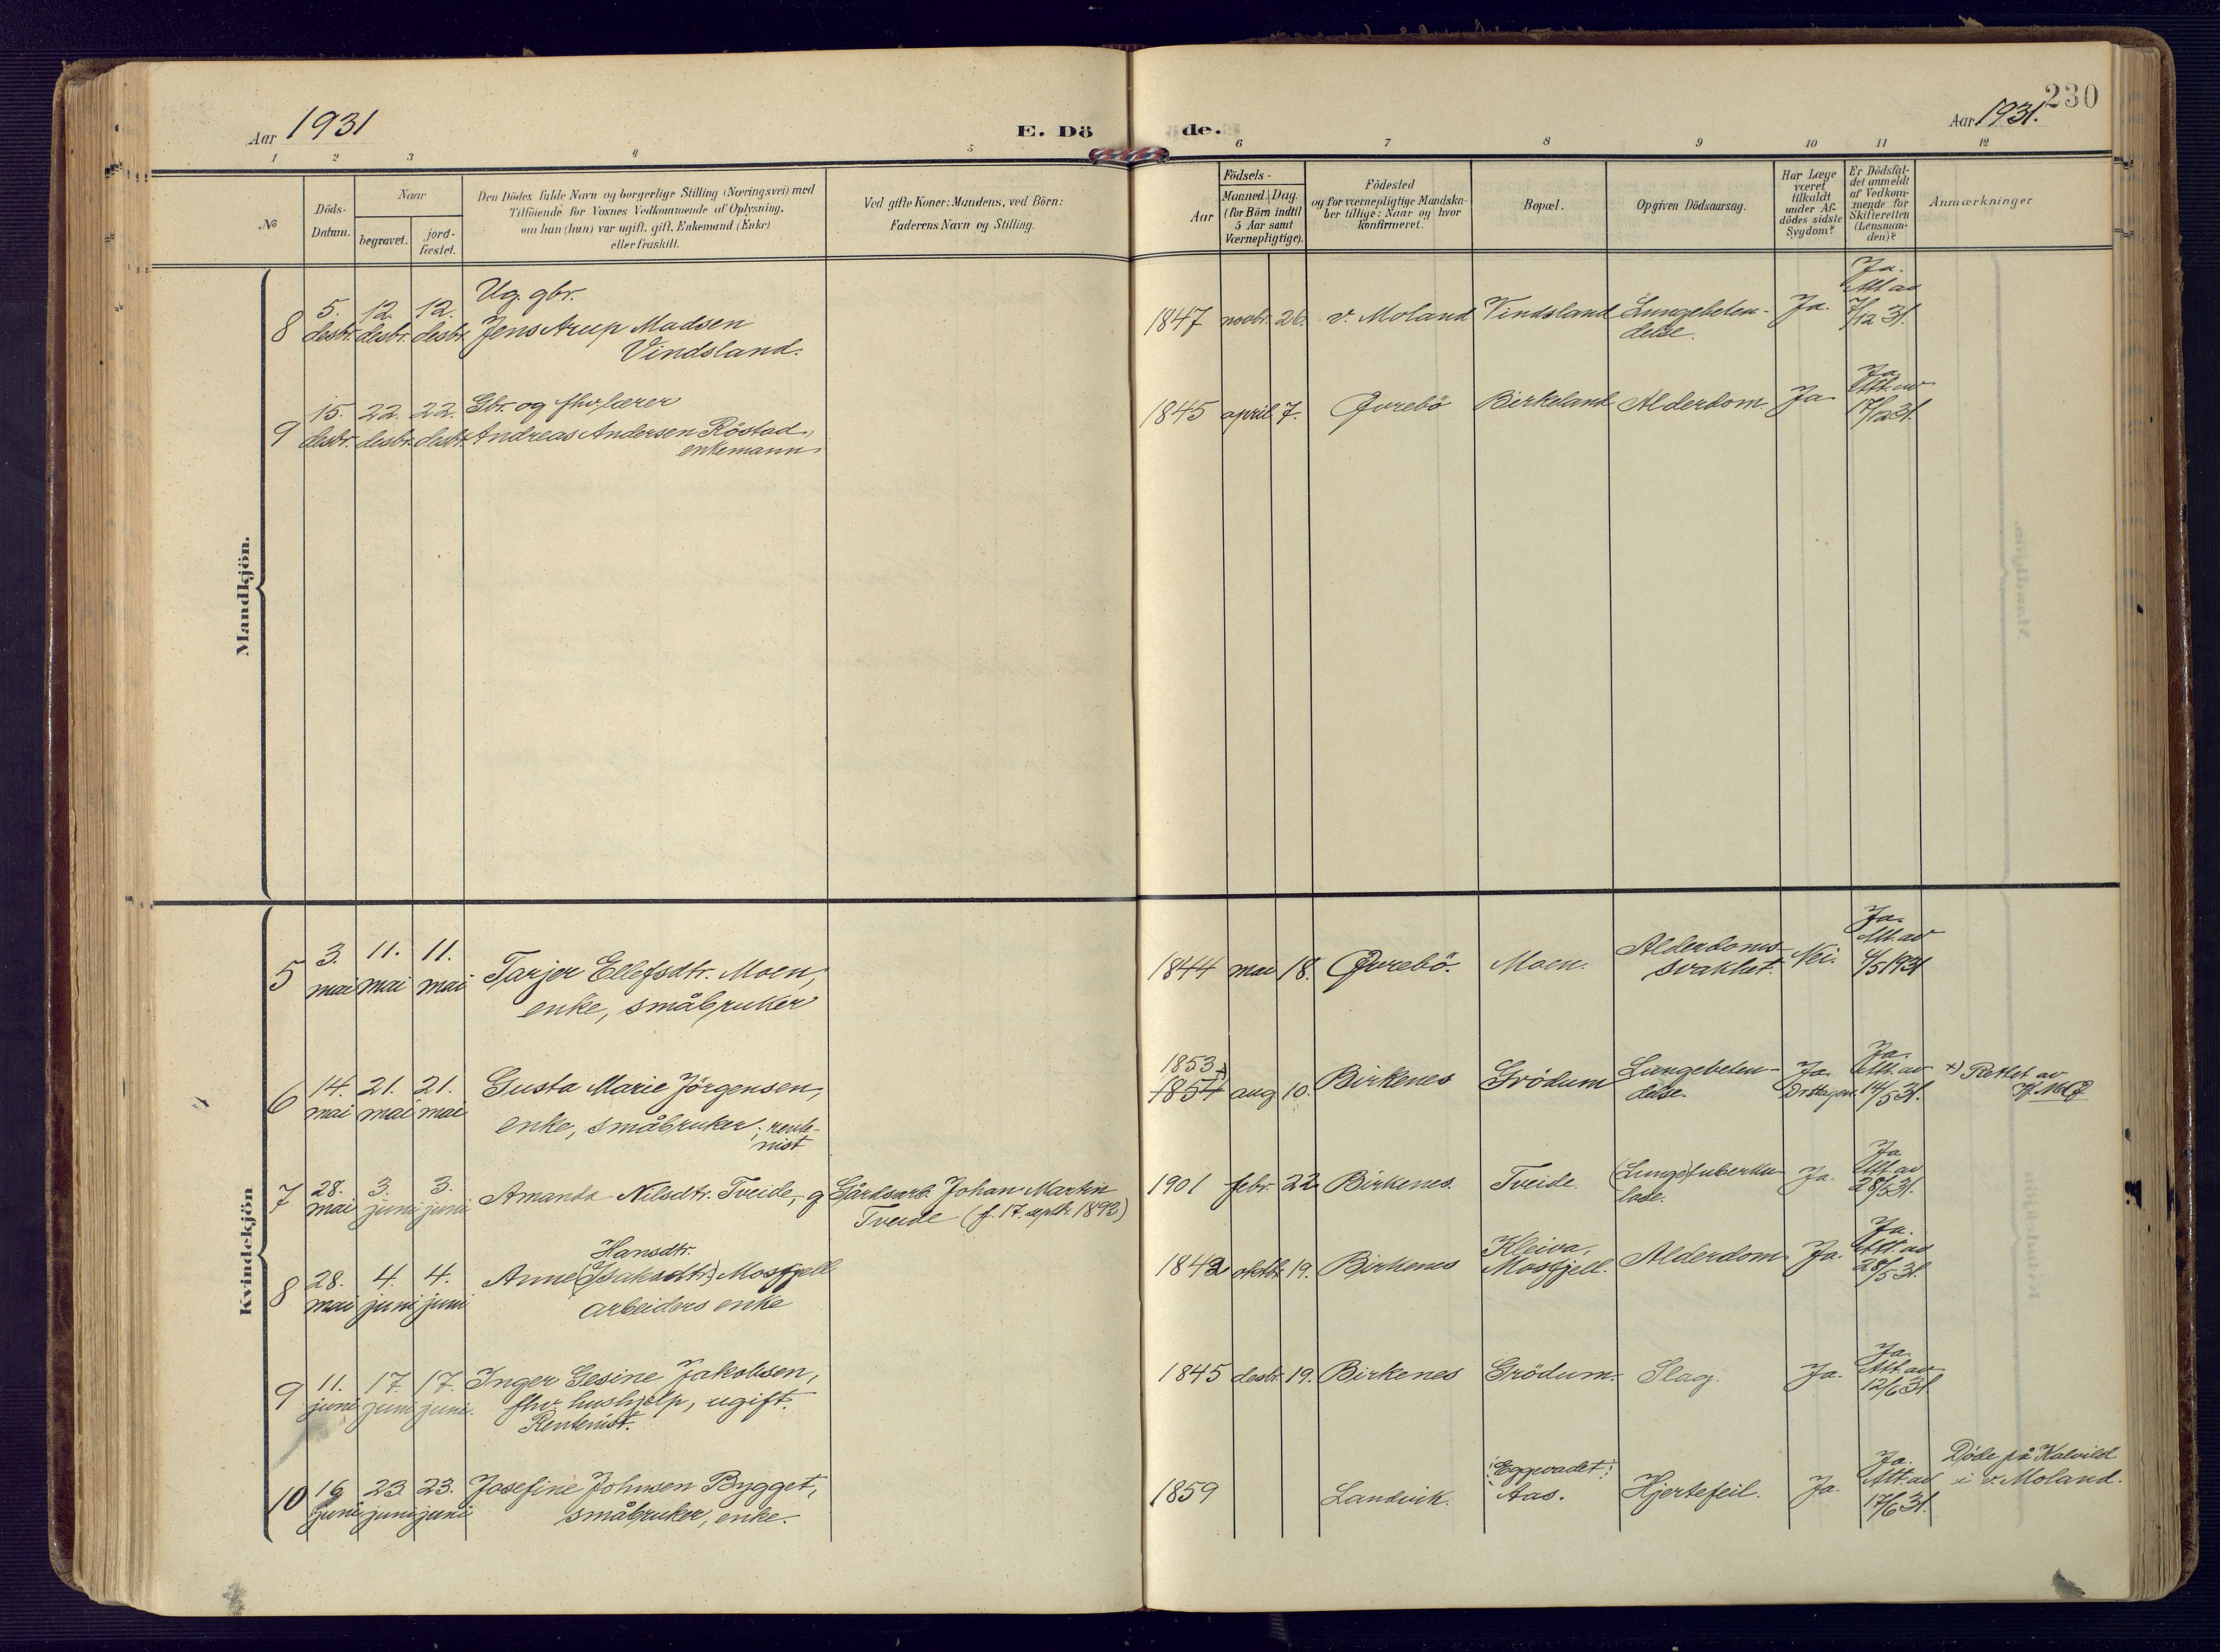 230
Aar 1931
E. Dö
de.
Aar 1931.
1 2 3 4 5 6 7 8 9 10 11 12
No
Döds-
Datum.
Naar
begravet.
jord-
fæstet.
Den Dödes fulde Navn og borgerlige Stilling (Næringsvei) med
Tilföiende for Voxnes Vedkommende af Oplysning,
om han (hun) var ugift, gift, Enkemand (Enke)
eller fraskilt.
Ved gifte Koner: Mandens, ved Börn:
Faderens Navn og Stilling.
Födsels-
Aar
Maaned. Dag.
(for Börn indtil
5 Aar samt
Værnepligtige).
Födested
og for værnepligtige Mandska-
ber tillige: Naar og hvor
konfirmeret.
Bopæl.
Opgiven Dödsaarsag.
Har Læge
været
tilkaldt
under Af-
dödes sidste
Sygdom?
Er Dödsfal-
det anmeldt
af Vedkom-
mende for
Skifteretten
(Lensman-
den)?
Anmærkninger
Mandkjön.
8 5. desbr. 12. desbr. 12. desbr.
Ug. gbr.
Jens Arup Madsen
Vindsland.
1847 novbr. 26. v. Moland Vindsland Lungebeten-
delse.
Ja.
Ja.
Att. av
7/12 31.
9 15. desbr. 22. desbr. 22. desbr.
Gbr. og fhv. lærer
Andreas Andersen Röstad,
enkemann.
1845 april 7. Øvrebö Birkeland Alderdom. Ja
Ja.
Att. av
17/12 31.
Kvindekjön
5 3. mai 11. mai 11. mai
Tarjer Ellefsdtr. Moen,
enke, småbruker
1844 mai 18. Øvrebö. Moen. Alderdoms-
svakhet.
Nei.
Ja.
Att. av
4/5 1931
6 14. mai 21. mai 21. mai
Gusta Marie Jörgensen,
enke, småbruker; rente-
nist
1853 +)
1854 aug. 10. Birkenes Grödum Lungebeten-
delse.
Ja.
Dr. Hagen.
Ja.
Att. av
14/5 31.
+) Rettet av
7 28. mai 3. juni 3. juni
Amanda Nilsdtr. Tveide, g
Gårdsarb. Johan Martin
Tveide (f. 17. septbr. 1893)
1901 febr. 22 Birkenes. Tveide. (Lunge)tuberku-
lose.
Ja.
Ja
Att. av
28/5 31.
8 28. mai 4. juni 4. juni
Hansdtr.
Anne (Isaksdtr.) Mosfjell
arbeiders enke
1842 oktbr. 19. Birkenes
Kleiva,
Mosfjell.
Alderdom Ja.
Ja.
Att. av
28/5 31.
9 11. juni 17. juni 17. juni.
Inger Gesine Jakobsen,
fhv. hushjelp, ugift.
Rentenist.
1845 desbr. 19. Birkenes Grödum. Slag. Ja.
Ja.
Att. av
12/6 31.
10 16 juni 23. juni 23. juni
Josefine Johnsen Bygget,
småbruker, enke.
1859 Landvik.
Eggevadet
Aas.
Hjertefeil. Ja.
Ja.
Att. av
17/6 31.
Døde på Kalvild
i v. Moland.